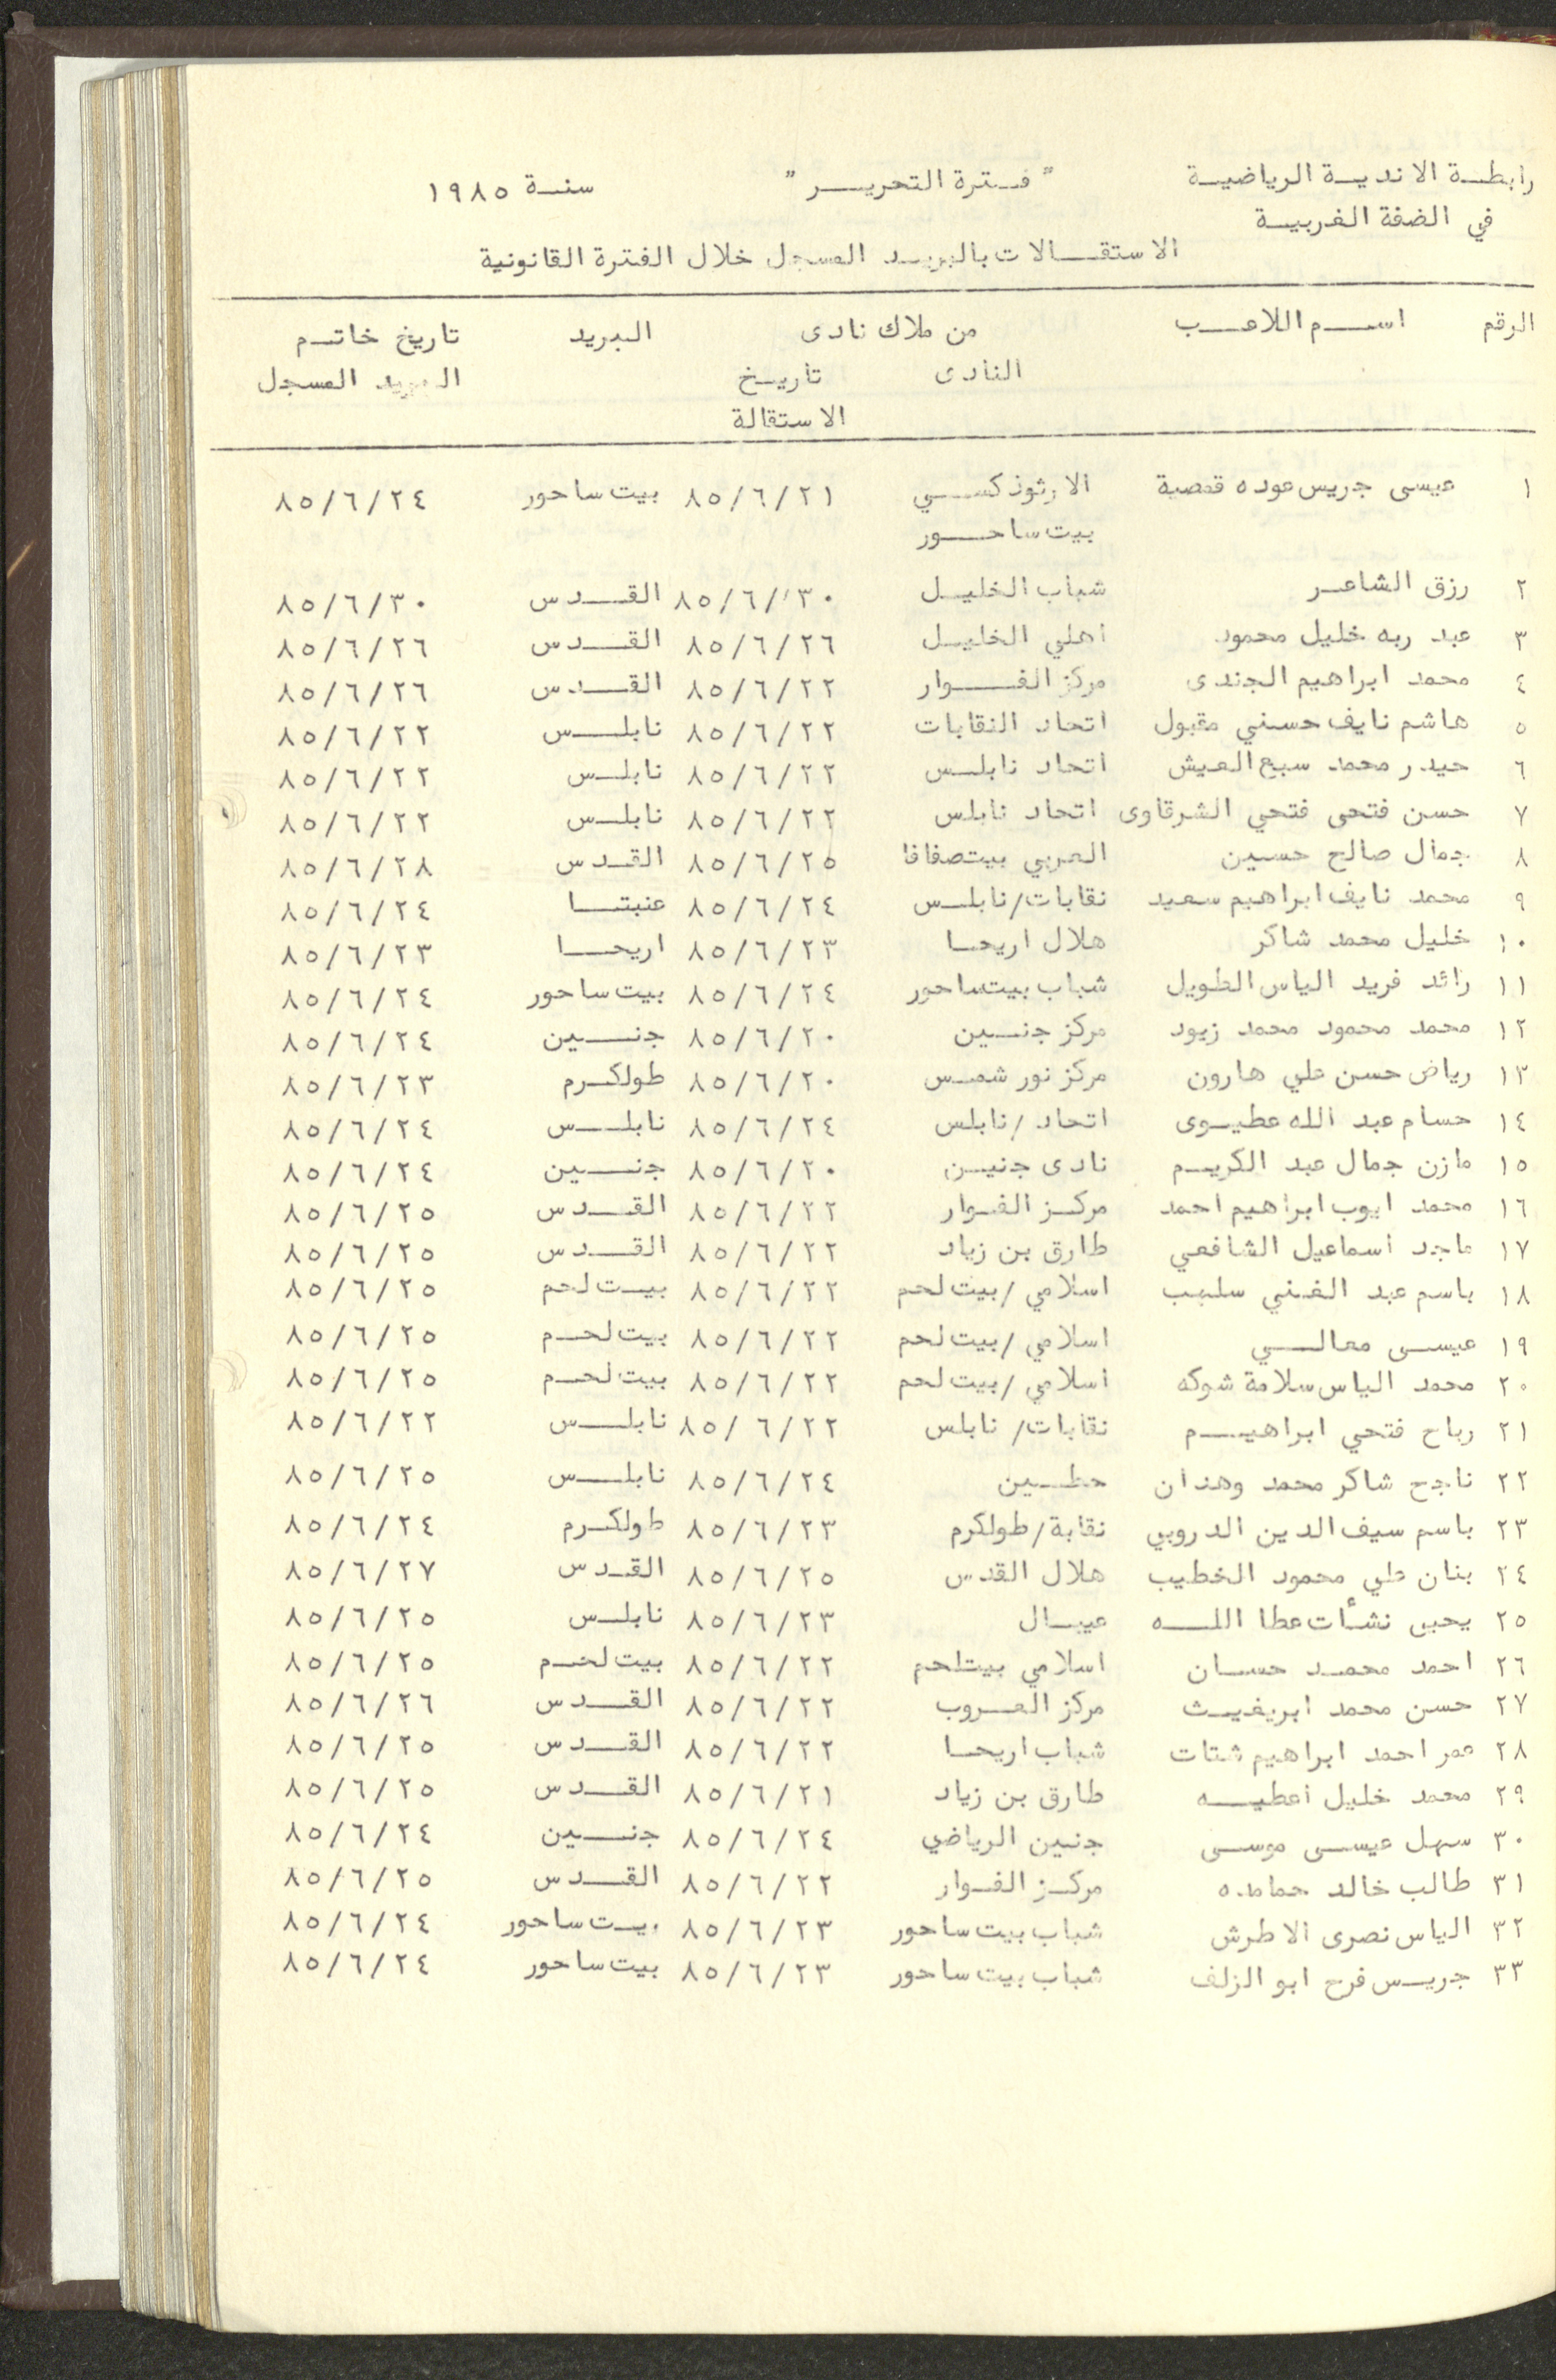 رابطة الاندية الرياضية " فترة التحرير " سنة ١٩٨٥
في الضفة الغربية
الاستقالات بالبريد المسجل خلال الفترة القانونية
الرقم اسم اللاعب من ملاك نادى البريد تاريخ خاتم
النادى تاريخ البريد المسجل
الاستقالة
١ عيسى جريس عوده قمصية الارثوذكسي ٨٥/٦/٢١ بيت ساحور ٨٥/٦/٢٤
بيت ساحور
٢ رزق الشاعر شباب الخليل ٨٥/٦/٣٠ القدس ٨٥/٦/٣٠
٣ عبد ربه خليل محمود اهلي الخليل ٨٥/٦/٢٦ القدس ٨٥/٦/٢٦
٤ محمد ابراهيم الجندى مركز الفوار ٨٥/٦/٢٢ القدس ٨٥/٦/٢٦
٥ هاشم نايف حسني مقبول اتحاد النقابات ٨٥/٦/٢٢ نابلس ٨٥/٦/٢٢
٦ حيدر محمد سبع العيش اتحاد نابلس ٨٥/٦/٢٢ نابلس ٨٥/٦/٢٢
٧ حسن فتحى فتحي الشرقاوى اتحاد نابلس ٨٥/٦/٢٢ نابلس ٨٥/٦/٢٢
٨ جمال صالح حسين العربي بيتصفافا ٨٥/٦/٢٥ القدس ٨٥/٦/٢٨
٩ محمد نايف ابراهيم سعيد نقابات/نابلس ٨٥/٦/٢٤ عنبتا ٨٥/٦/٢٤
١٠ خليل محمد شاكر هلال اريحا ٨٥/٦/٢٣ اريحا ٨٥/٦/٢٣
١١ رائد فريد الياس الطويل شباب بيتساحور ٨٥/٦/٢٤ بيت ساحور ٨٥/٦/٢٤
١٢ محمد محمود محمد زيود مركز جنين ٨٥/٦/٢٠ جنين ٨٥/٦/٢٤
١٣ رياض حسن علي هارون مركز نور شمس ٨٥/٦/٢٠ طولكرم ٨٥/٦/٢٣
١٤ حسام عبد الله عطيوى اتحاد /نابلس ٨٥/٦/٢٤ نابلس ٨٥/٦/٢٤
١٥ مازن جمال عبد الكريم نادى جنين ٨٥/٦/٢٠ جنين ٨٥/٦/٢٤
١٦ محمد ايوب ابراهيم احمد مركز الفوار ٨٥/٦/٢٢ القدس ٨٥/٦/٢٥
١٧ ماجد اسماعيل الشافعي طارق بن زياد ٨٥/٦/٢٢ القدس ٨٥/٦/٢٥
١٨ باسم عبد الغني اسلامي /بيت لحم ٨٥/٦/٢٢ بيت لحم ٨٥/٦/٢٥
١٩ عيسى معالي اسلامي /بيت لحم ٨٥/٦/٢٢ بيت لحم ٨٥/٦/٢٥
٢٠ محمد الياس سلامة شوكه اسلامي /بيت لحم ٨٥/٦/٢٢ بيت لحم ٨٥/٦/٢٥
٢١ رباح فتحي ابراهيم نقابات/ نابلس ٨٥/٦/٢٢ نابلس ٨٥/٦/٢٢
٢٢ ناجح شاكر محمد وهدان حطين ٨٥/٦/٢٤ نابلس ٨٥/٦/٢٥
٢٣ باسم سيف الدين الدروبي نقابة/طولكرم ٨٥/٦/٢٣ طولكرم ٨٥/٦/٢٤
٢٤ بنان علي محمود الخطيب هلال القدس ٨٥/٦/٢٥ القدس ٨٥/٦/٢٧
٢٥ يحيى نشأت عطا الله عيبال ٨٥/٦/٢٣ نابلس ٨٥/٦/٢٥
٢٦ احمد محمد حسان اسلامي بيتلحم ٨٥/٦/٢٢ بيت لحم ٨٥/٦/٢٥
٢٧ حسن محمد ابريغيث مركز العروب ٨٥/٦/٢٢ القدس ٨٥/٦/٢٦
٢٨ عمر احمد ابراهيم شتات شباب اريحا ٨٥/٦/٢٢ القدس ٨٥/٦/٢٥
٢٩ محمد خليل اعطيه طارق بن زياد ٨٥/٦/٢١ القدس ٨٥/٦/٢٥
٣٠ سهل عيسى موسى جنين الرياضي ٨٥/٦/٢٤ جنين ٨٥/٦/٢٤
٣١ طالب خالد حمامده مركز الفوار ٨٥/٦/٢٢ القدس ٨٥/٦/٢٥
٣٢ الياس نصرى الاطرش شباب بيت ساحور ٨٥/٦/٢٣ بيت ساحور ٨٥/٦/٢٤
٣٣ جريس فرح ابو الزلف شباب بيت ساحور ٨٥/٦/٢٣ بيت ساحور ٨٥/٦/٢٤